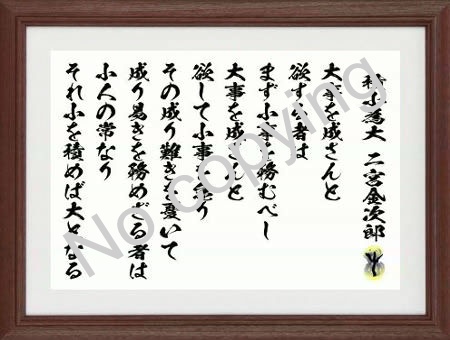 積小為大 二宮金次郎
大事を成さんと
欲する者は
まず小事を務むべし
大事を成さんと
欲して小事を怠り
その成り難きを憂いて
成り易きを務めざる者は
小人の常なり
それ小を積めば大となる
No copying